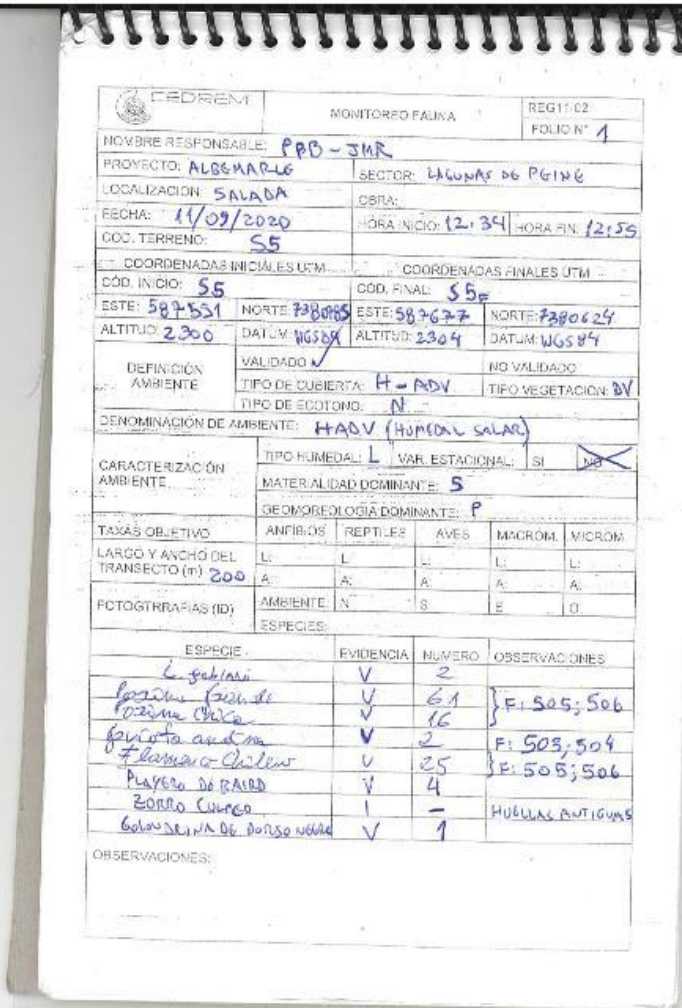 CEDREM
MONITOREO FAUNA
REG11-02
FOLIO N° 1
NOMBRE RESPONSABLE: PBB - JMR
PROYECTO: ALBEMARLE
SECTOR: LAGUNAS DE PEINE
LOCALIZACIÓN: SALADA
OBRA:
FECHA: 11/09/2020
HORA INICIO: 12:34 HORA FIN: 12:55
COD. TERRENO: S5
COORDENADAS INICIALES UTM
COORDENADAS FINALES UTM
CÓD. INICIO: S5
CÓD. FINAL: S5F
ESTE: 587531 NORTE: ESTE: 587677 NORTE: 7380624
ALTITUD 2300 DATUM: WGS84 ALTITUD: 2304 DATUM: WGS84
DEFINICIÓN AMBIENTE
VALIDADO ✓ NO VALIDADO
TIPO DE CUBIERTA: H-ADV TIPO VEGETACIÓN: BV
TIPO DE ECOTONO: N
DENOMINACIÓN DE AMBIENTE: HADV (HUMEDAL SALAR)
CARACTERIZACIÓN AMBIENTE
TIPO HUMEDAL: L VAR. ESTACIONAL: SI NO
MATERIALIDAD DOMINANTE: S
GEOMORFOLOGIA DOMINANTE: P
TAXAS OBJETIVO ANFIBIOS REPTILES AVES MACROM. MICROM
LARGO Y ANCHO DEL TRANSECTO (m) 200
L: L L: L: L:
A: A: A: A: A:
FOTOGTRRAFIAS (ID)
AMBIENTE: N S E O
ESPECIES:
ESPECIE EVIDENCIA NUMERO OBSERVACIONES
L. fabiani V 2
V 61 F: 505; 506
chica V 16
andina V 2 F: 503; 504
Flamenco Chileno V 25 F: 505; 506
PLAYERO DE BAIRD V 4
ZORRO CULPEO I - HUELLAS ANTIGUAS
GOLONDRINA DE DORSO NEGRO V 1
OBSERVACIONES: